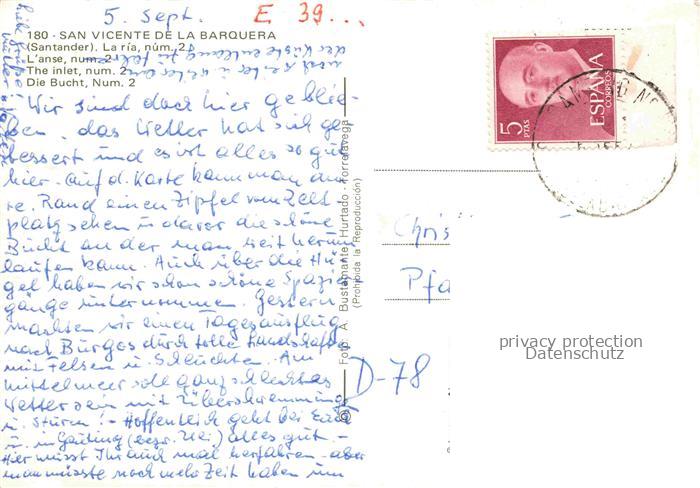 5. Sept. E 39...
180 - SAN VICENTE DE LA BARQUERA
(Santander). La ría, núm. 2
L'anse, num. 2
The inlet, num. 2
Die Bucht, Num. 2
Wir sind doch hier geblie-
ben, das Wetter hat sich ge
bessert und es ist alles so gut
hier. Auf d. Karte kann man am
re. Rand einen Zipfel vom Zelt-
platz sehen u. davor die schöne
Bucht an der man weit herum
laufen kann. Auch über die Hü-
gel haben wir schon schöne Spazier
gänge unternommen. Gestern
machten wir einen Tagesausflug
nach Burgos durch tolle Landschaften
mit Felsen u. Schluchten. Am
Mittelmeer soll ganz schlechtes
Wetter sein mit Überschwemmungen
u. Sturm! - Hoffentlich geht bei Euch
u. in Gauting (bezw. Uli) alles gut. -
Hier müsst Ihr auch mal herfahren - aber
man müsste noch mehr Zeit haben um
der Küste entlang zu fahren
Foto: A. Bustamante Hurtado - Torrelavega
(Prohibida la Reproducción)
5
PTAS
ESPAÑA
CORREOS
Chris
Pfa
D-78
privacy protection
Datenschutz